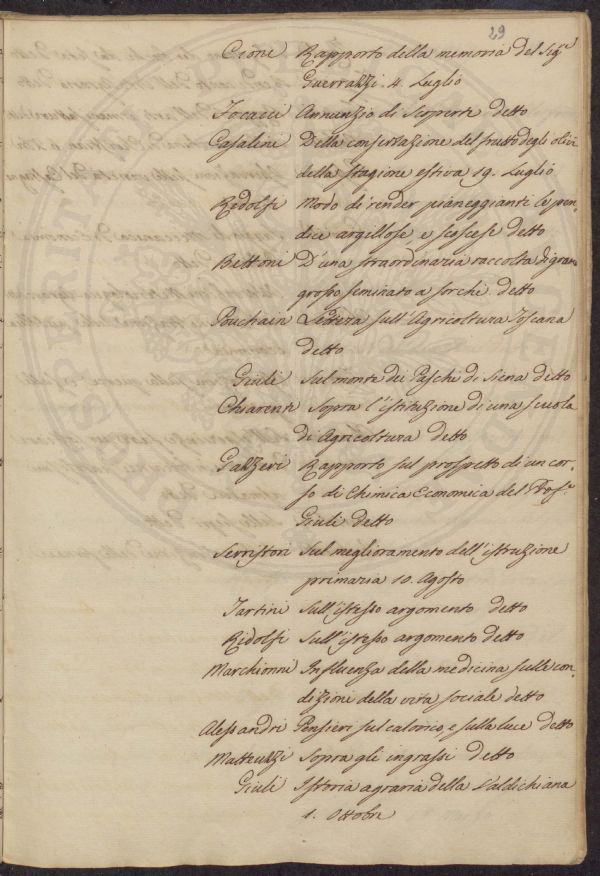 29
Cioni Rapporto della memoria del Sigr
Guerrazzi. 4. Luglio
Tocacci Annunzio di Scoperte detto
Casalini Della conservazione del frutto degli olivi
della stagione estiva 19. Luglio
Ridolfi Modo di render pianeggianti le pen-
dice argillose e scoscese detto
Bettoni D'una straordinaria raccolta di gran
grosso seminato a sorchi detto
Pouchain Lettera sull'Agricoltura Toscana
detto
Giuli Sul monte dei Paschi di Siena detto
Chiarenti Sopra l'istituzione di una scuola
di Agricoltura detto
Gazzeri Rapporto sul prospetto di un cor-
so di Chimica Economica del Prof.
Giuli detto
Serristori Sul miglioramento dell'istruzione
primaria 10. Agosto
Tartini Sull'istesso argomento detto
Ridolfi Sull'istesso argomento detto
Marchionni Influenza della medicina sulle con-
dizioni della vita sociale detto
Alessandri Pensieri sul calorico, e sulla luce detto
Matteuzzi Sopra gli ingrassi detto
Giuli Istoria agraria della Valdichiana
1. Ottobre